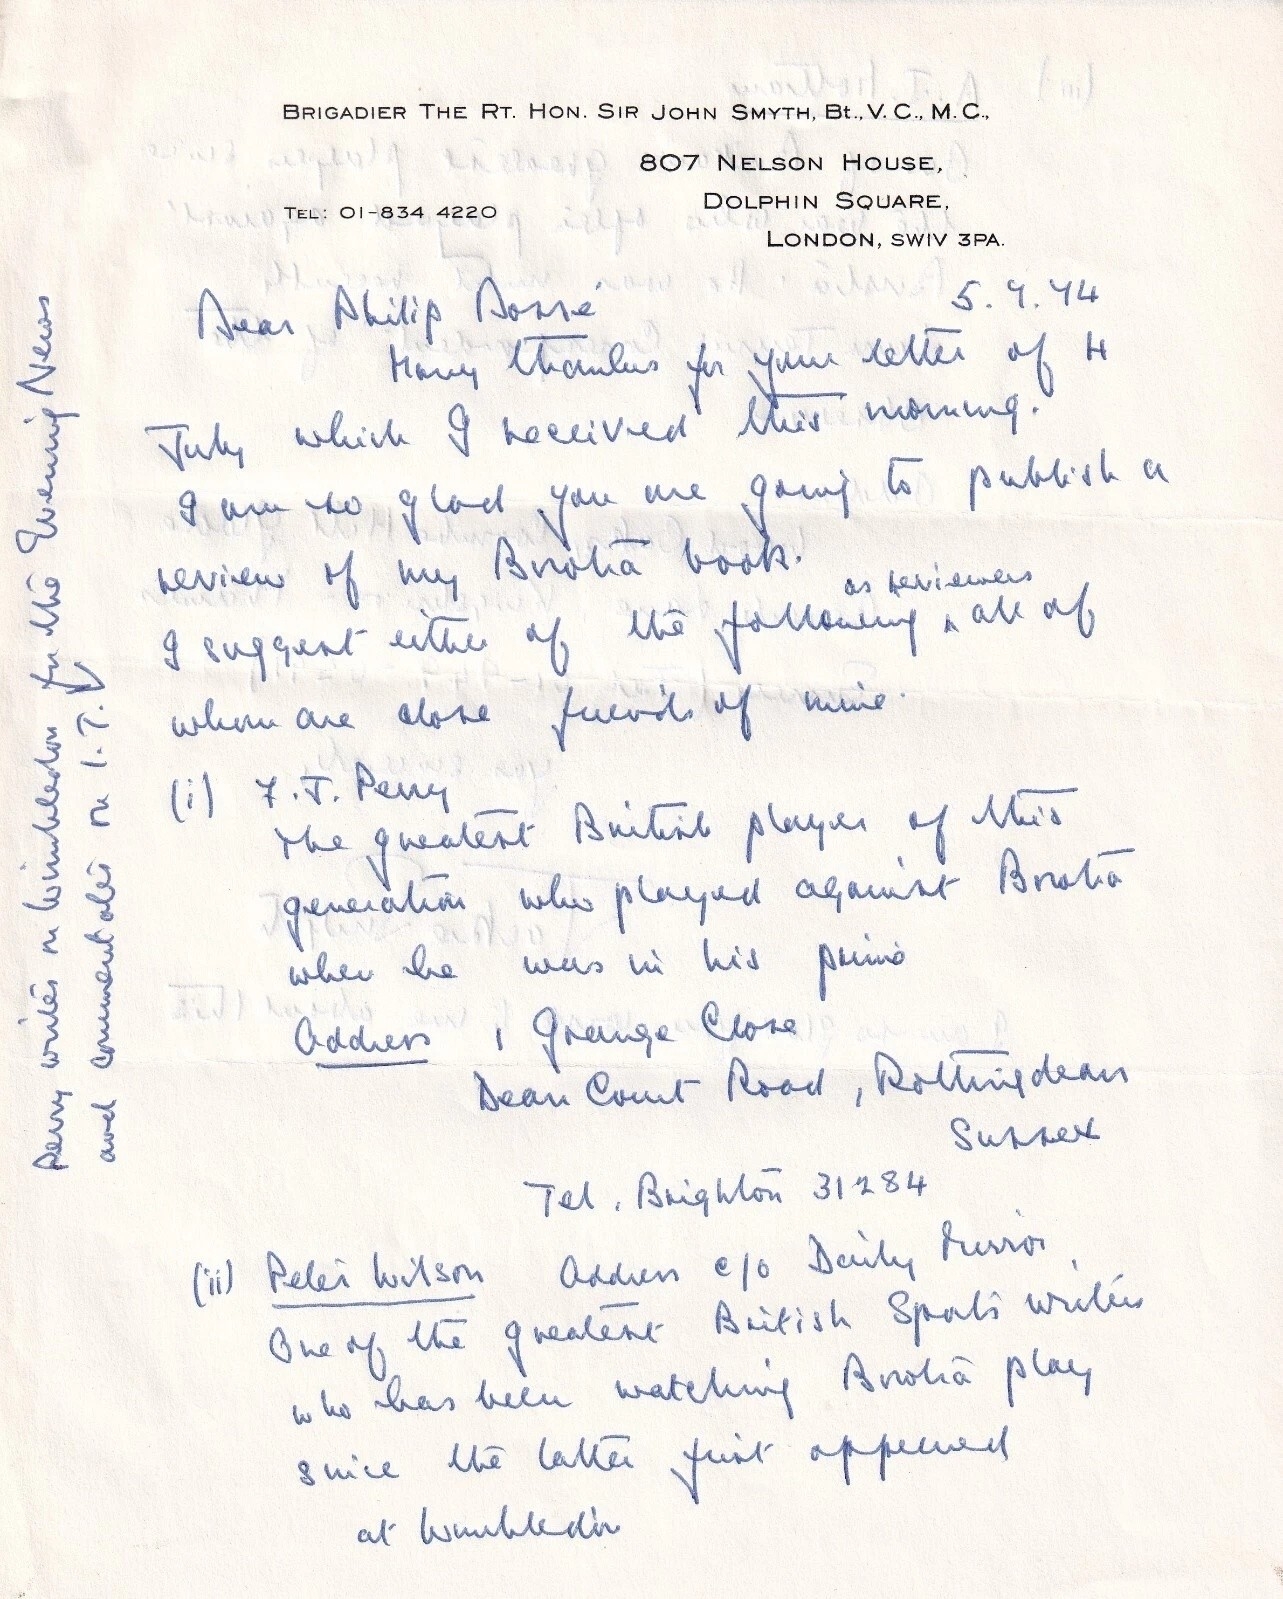 BRIGADIER THE RT. HON. SIR JOHN SMYTH, Bt., V.C., M.C.,
807 NELSON HOUSE,
DOLPHIN SQUARE,
TEL: 01-834 4220
LONDON, SW1V 3PA.
5.7.74
Dear Philip Dossé
Many thanks for your letter of 4
July which I received this morning.
I am so glad you are going to publish a
review of my Borotra book.
as reviewers
I suggest either of the following ^ all of
whom are close friends of mine.
(i) F.J. Perry
The greatest British player of this
generation who played against Borotra
when he was in his prime
Address 1 Grange Close
Dean Court Road, Rottingdean
Sussex
Tel. Brighton 31284
(ii) Peter Wilson Address c/o Daily Mirror,
One of the greatest British Sports writers
who has been watching Borotra play
since the latter first appeared
at Wimbledon
Perry writes on Wimbledon for the Evening News
and commentates on I.T.V